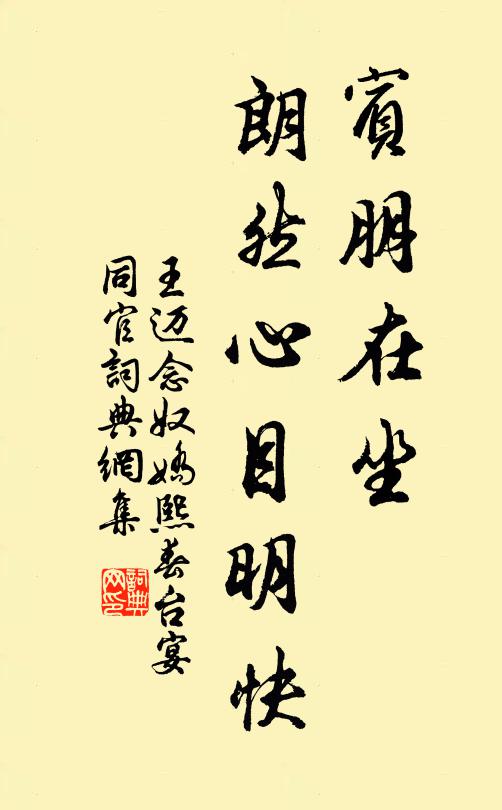 賓朋在坐
朗然心目明快
王迈念奴嬌熙春台宴
同官詞典網集
詞典
网印